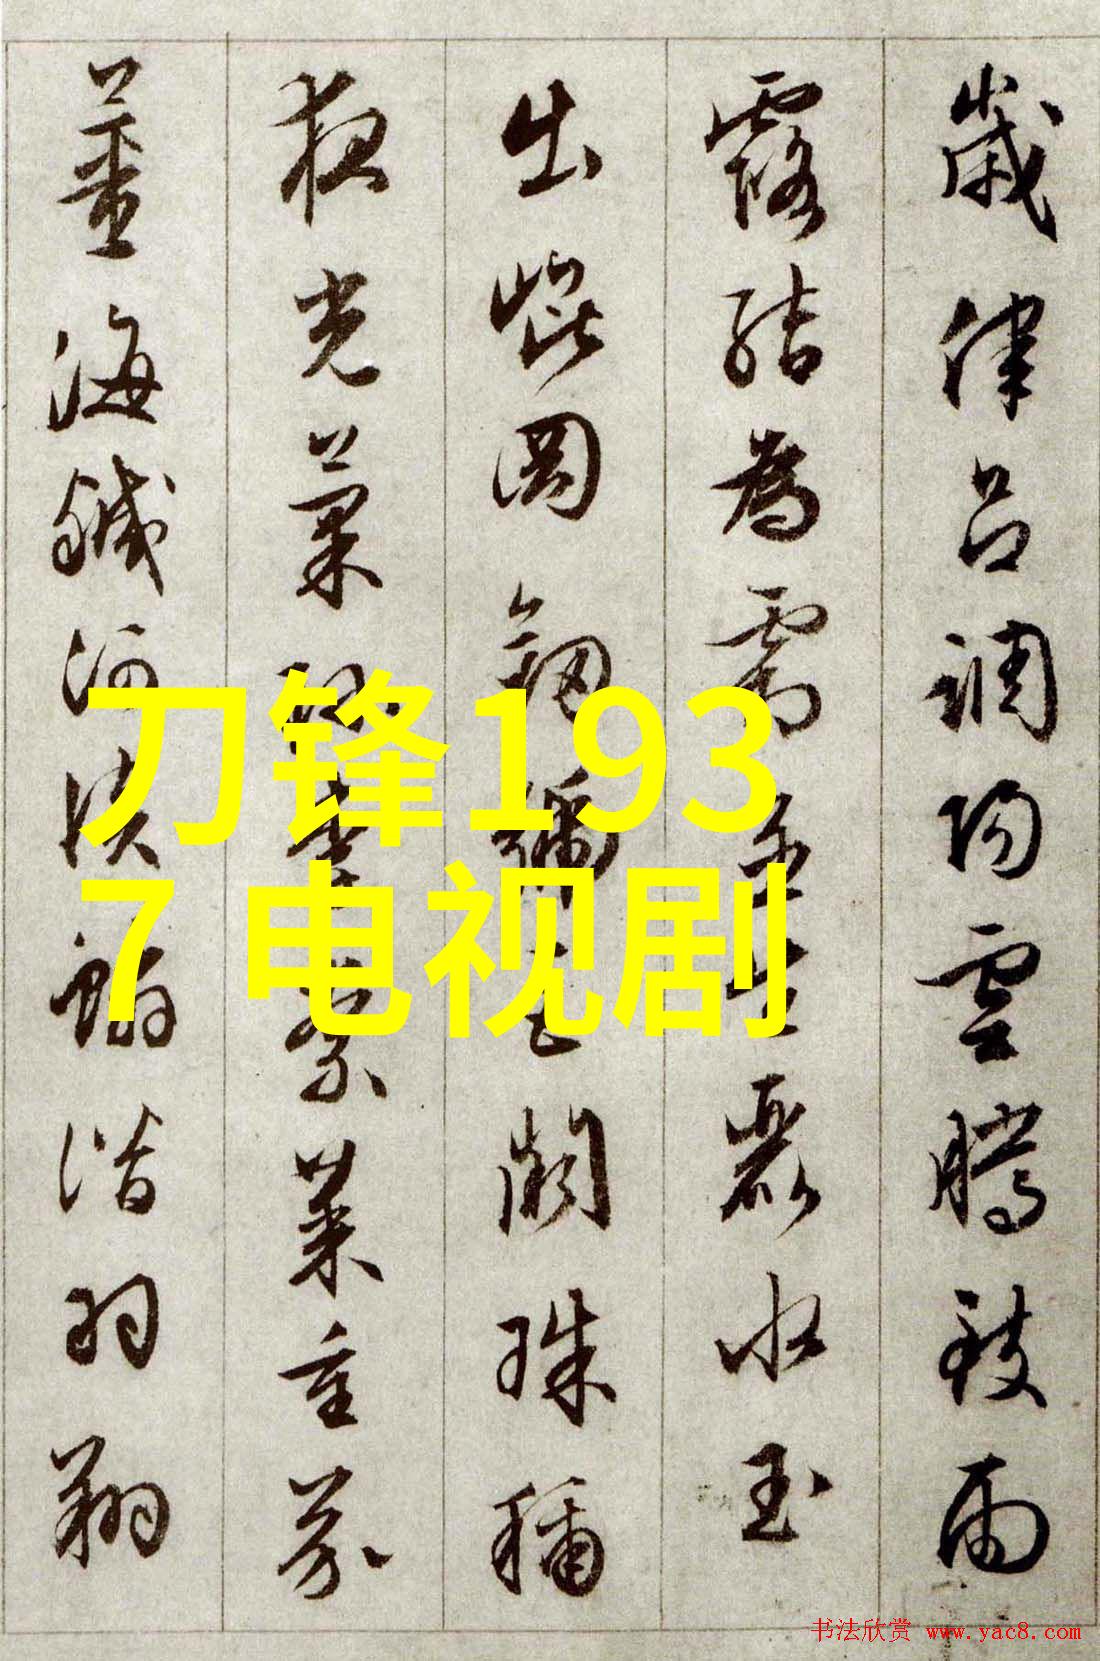 歲律呂調陽雲騰致雨
露結為霜金生麗水玉
出崐岡劒號巨闕珠稱
夜光菓珎李柰菜重芥
薑海鹹河淡鱗潛羽翔
刀锋193
7 电视剧
书法欣赏 www.yac8.com